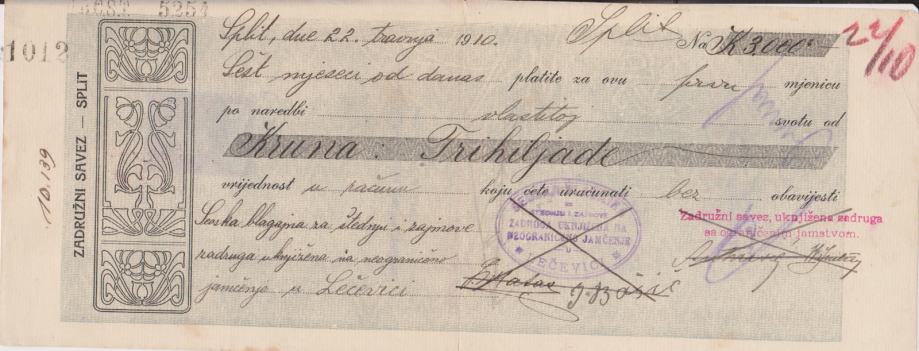 5254
1012
ZADRUŽNI SAVEZ — SPLIT
10.139
Split, dne 22. travnja 1910. Split Na K 3,000
22/10
Šest mjeseci od danas platite za ovu prvu mjenicu
po naredbi vlastitoj svotu od
Kruna: Trihiljade
vrijednost u računu koju ćete uračunati bez obavijesti
Seoska blagajna za štednju i zajmove
zadruga uknjižena na neograničeno
jamčenje u Lećevici
ŠTEDNJU I ZAJMOVE
ZADRUGA UKNJIŽENA NA
NEOGRANIČENO JAMČENJE
U
LEČEVICI
Zadružni savez, uknjižena zadruga
sa ograničenim jamstvom.